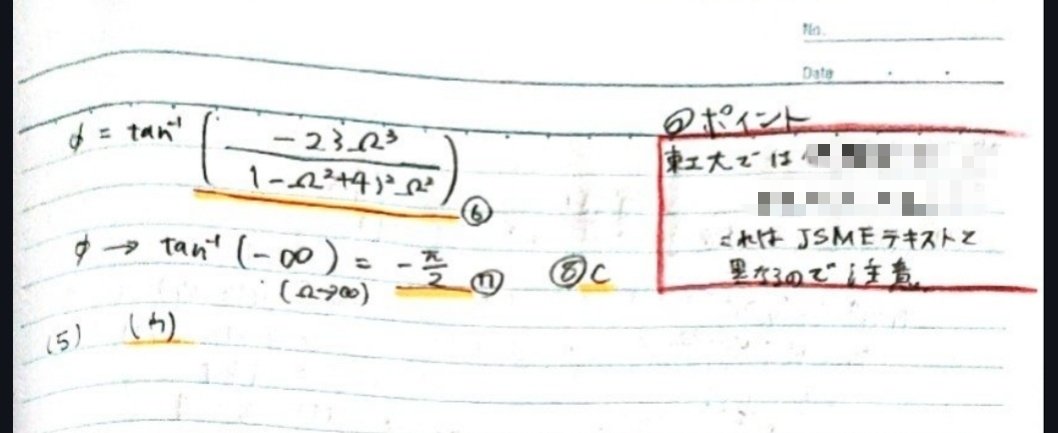 No.
Date
φ = tan⁻¹ ( -2ζΩ³ / 1-Ω²+4ζ²Ω² ) ⑥
φ → tan⁻¹ (-∞) = -π/2 ⑦ ⑧ C
(Ω→∞)
(5) (カ)
◎ポイント
東工大では
これは JSMEテキストと
異なるので注意。